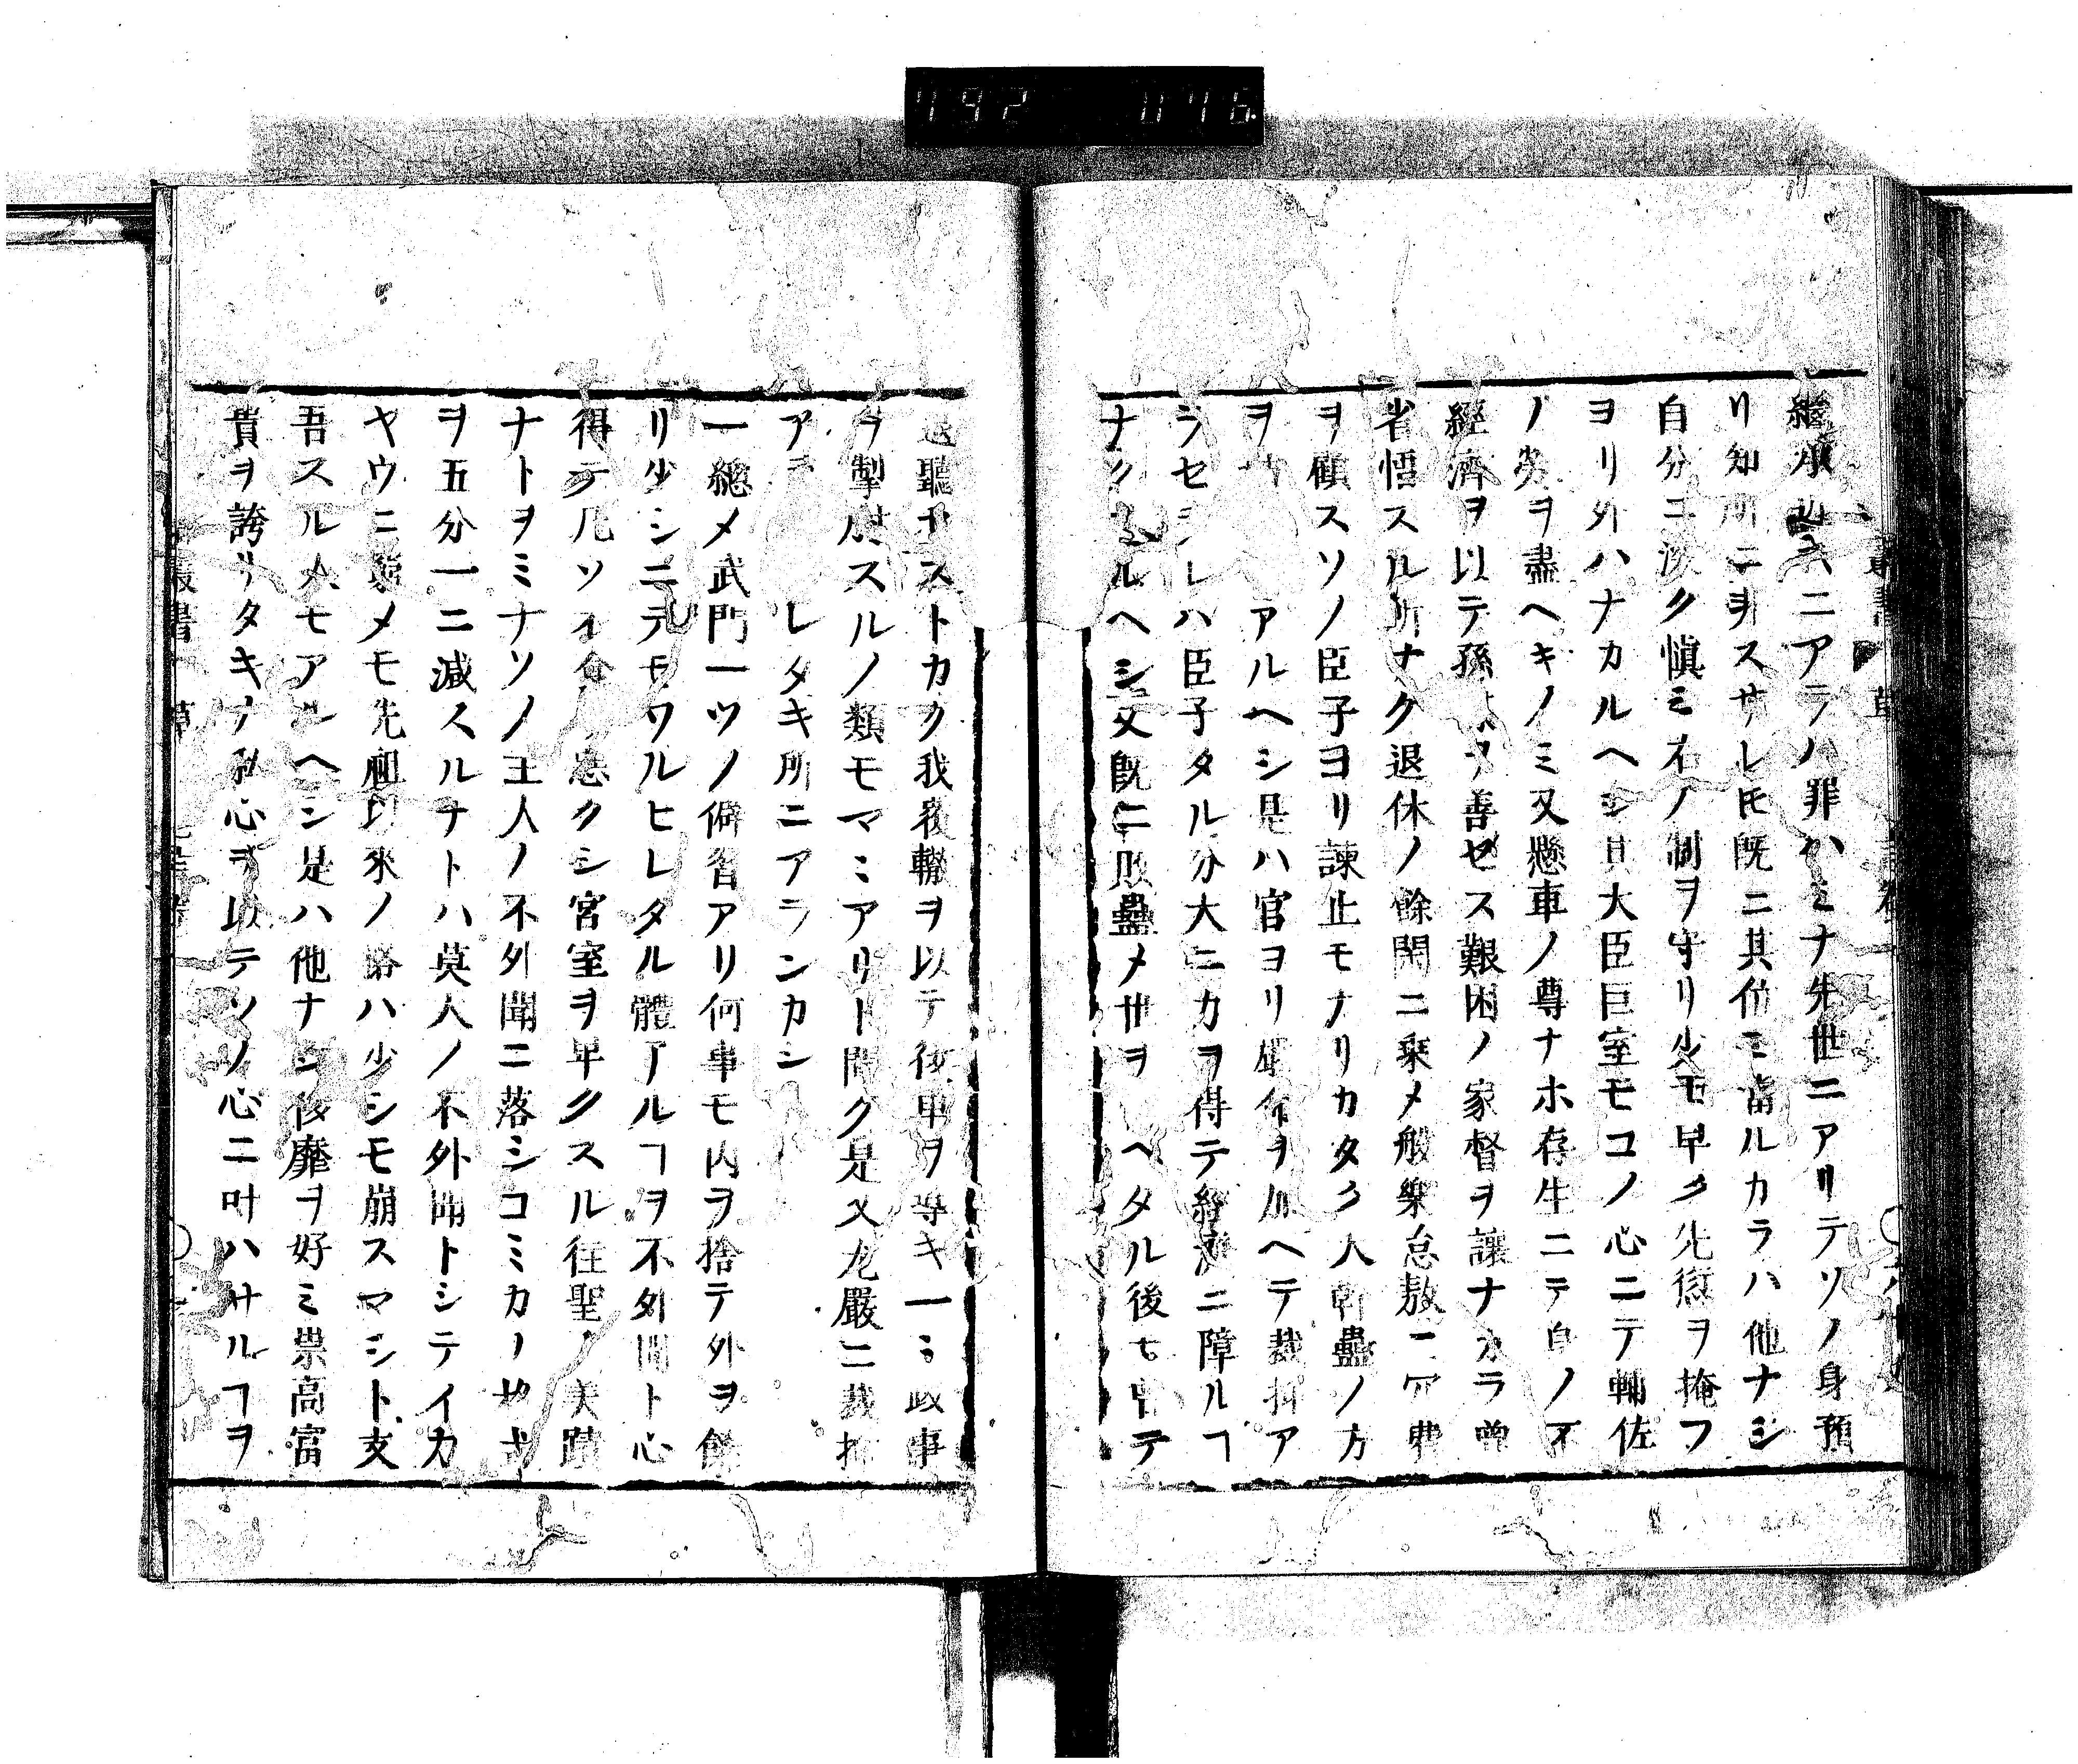 792 046
繼承 ニアラノハ罪ハミナ先世ニアリテソノ身預
リ知所ニヲスサレ𪜈既ニ其位ニ當ルカラハ他ナシ
自分ニ深ク愼ミ不ノ制ヲ守リ少モ早ク先愆ヲ掩フ
ヨリ外ハナカルヘシ且大臣巨室モコノ心ニテ輔佐
ノ勞ヲ盡ヘキノミ又懸車ノ尊ナホ存生ニテ自ノ不
經濟ヲ以テ孫 ヲ善セス艱困ノ家督ヲ讓ナカラ曾
省悟スル所ナク退休ノ餘閑ニ乘メ般樂怠敖ニ冗費
ヲ顧スソノ臣子ヨリ諫止モナリカタク人幹蠱ノ方
ヲ アルヘシ是ハ官ヨリ屢命ヲ加ヘテ裁抑ア
ラセラレハ臣子タル分大ニカヲ得テ經濟ニ障ルヿ
ナクナルヘシ又既ニ敗蠱メ世ヲ ヘタル後モ甲テ
退聽セストカク我覆轍ヲ以テ後車ヲ導キ一ミ政事
ヲ掣肘スルノ類モマミアリト聞ク是又尤嚴ニ裁抑
アラ レタキ所ニアランカシ
一總メ武門一ツノ僻習アリ何事モ内ヲ捨テ外ヲ餝
リ少シニテモワルヒレタル體アルヿヲ不外聞ト心
得テ凡ソ衣食 惡クシ宮室ヲ卑クスル往聖ノ美蹟
ナトヲミナソノ王人ノ不外聞ニ落シコミカノ格式
ヲ五分一ニ減スルナトハ莫大ノ不外聞トシテイカ
ヤウニ發メモ先祖以來ノ格ハ少シモ崩スマシト支
吾スル人モアルヘシ是ハ他ナシ侈靡ヲ好ミ崇高富
貴ヲ誇リタキノ私心ヲ以テソノ心ニ叶ハサルヿヲ